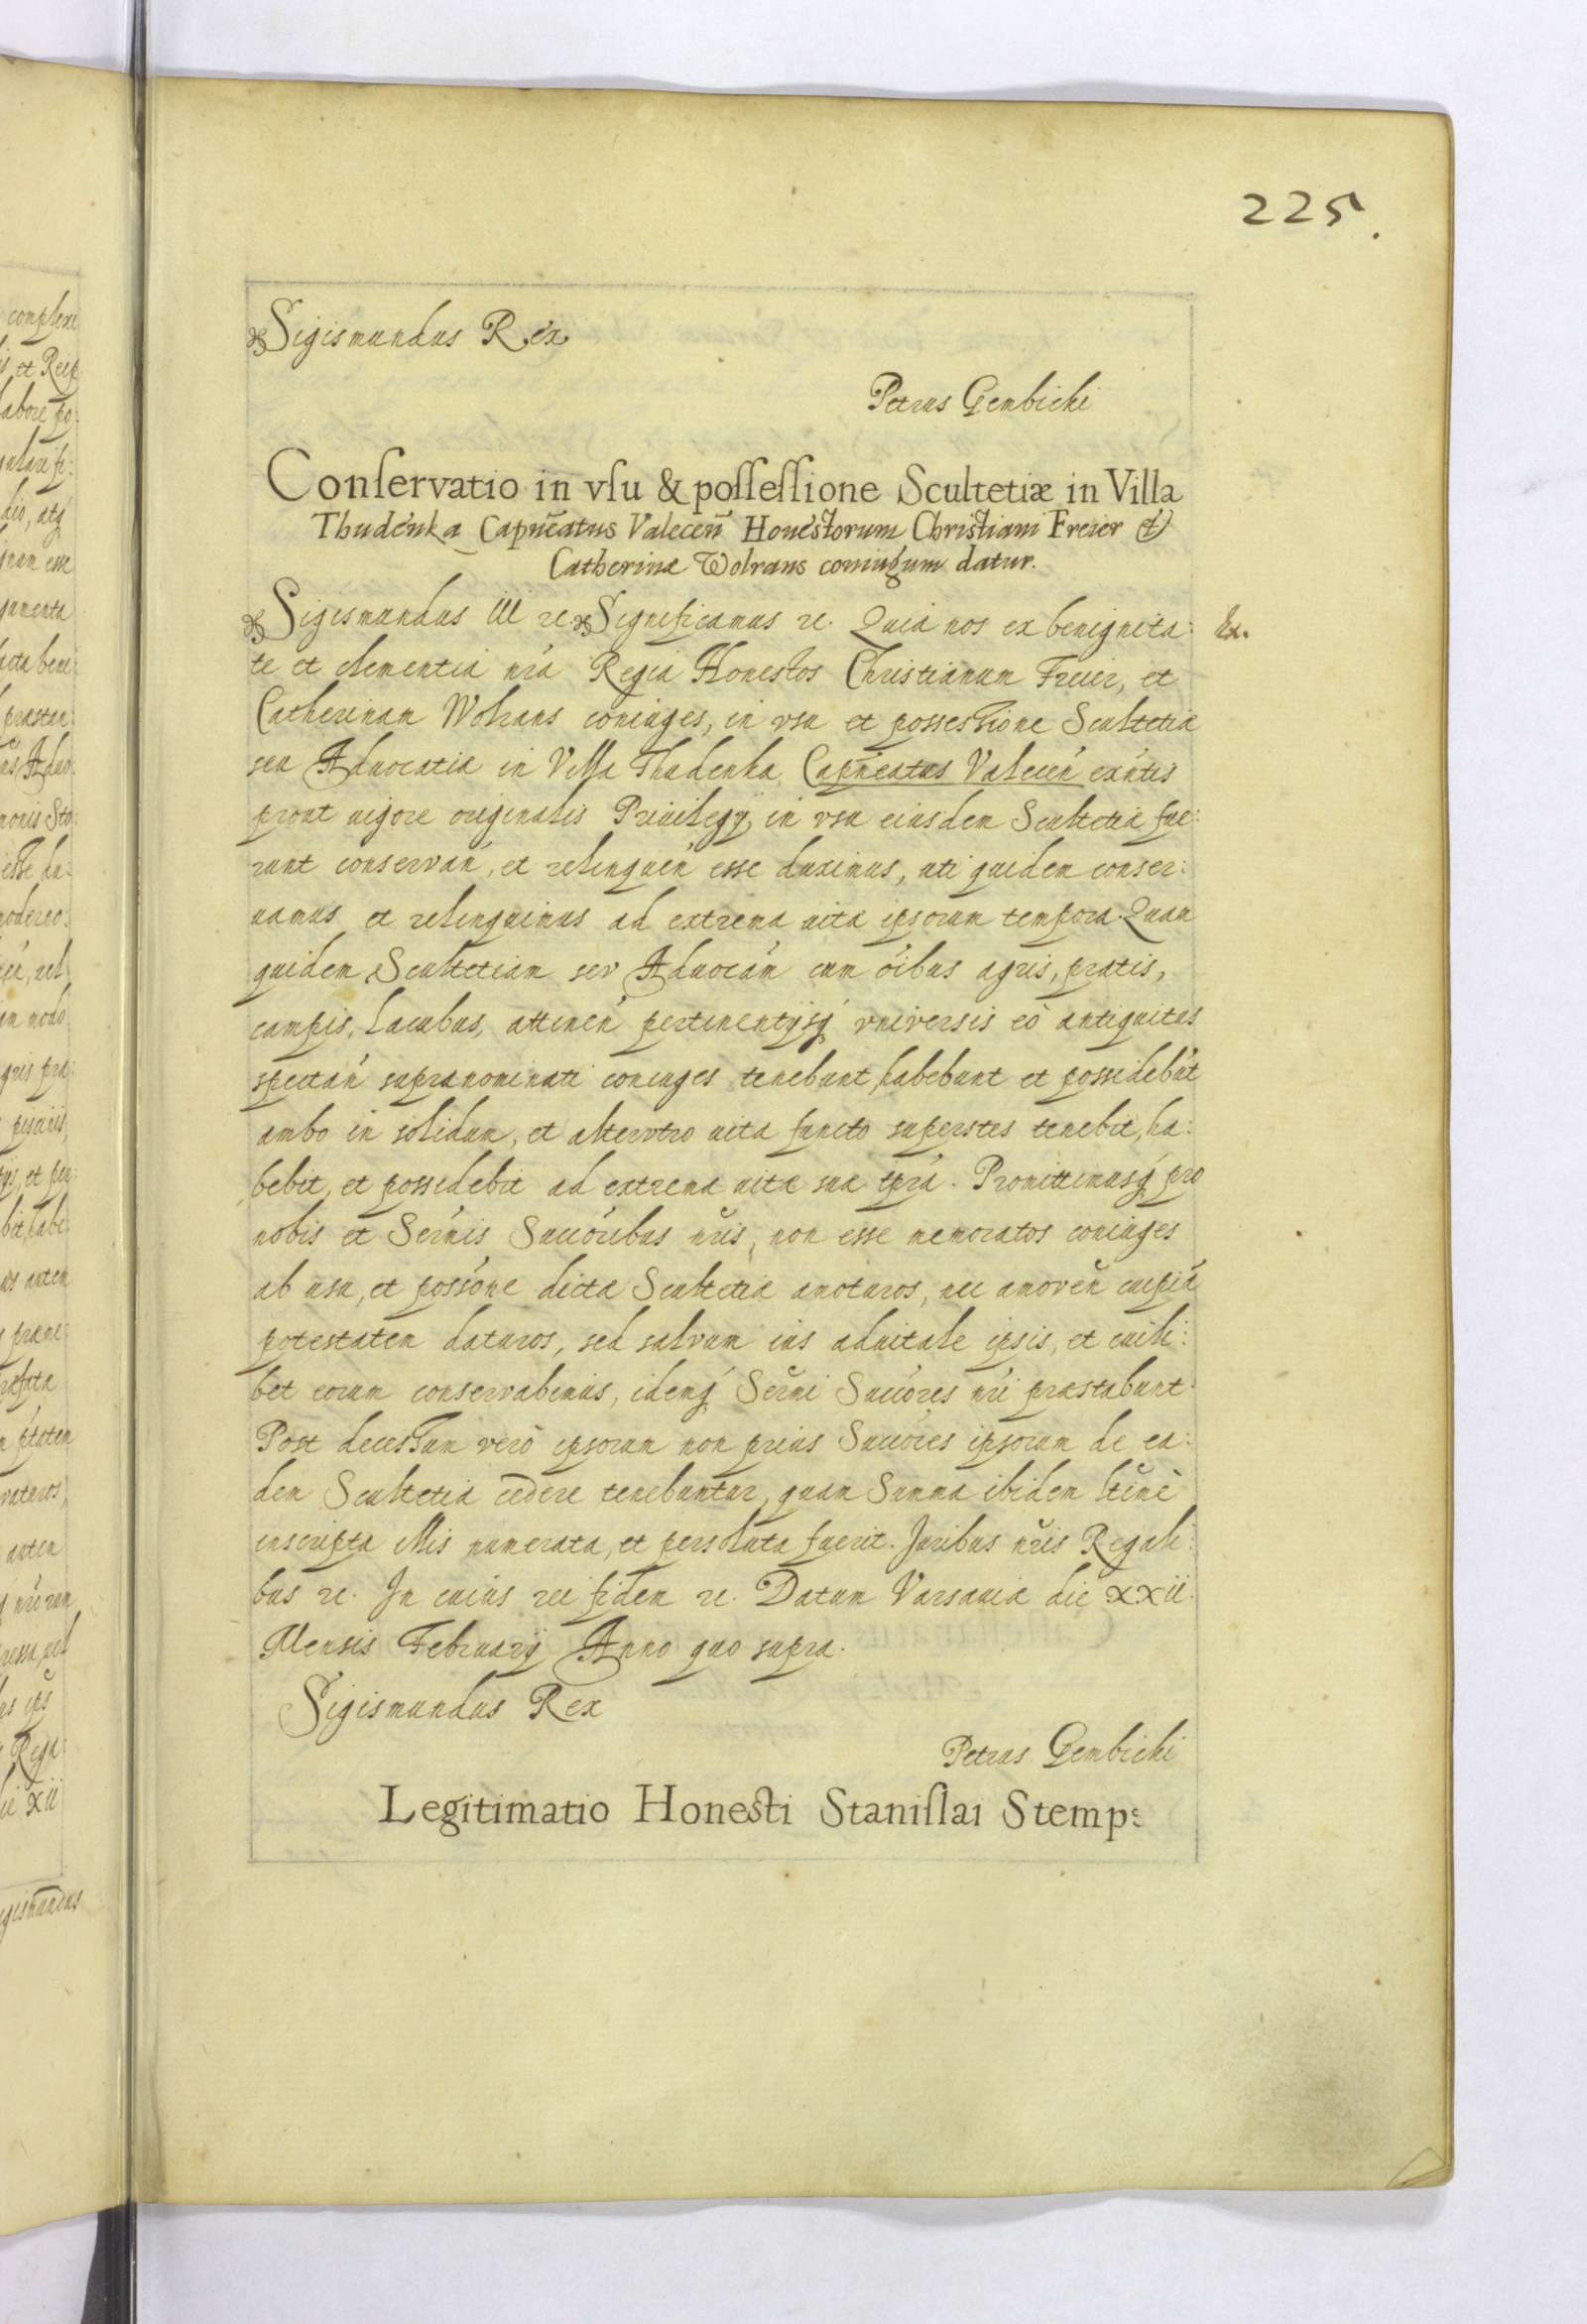 225.
Sigismundus Rex
Petrus Gembicki
Conſervatio in vſu & poſſeſſione Scultetiæ in Villa
Thudenka Capnēatus Valecen̄ Honestorum Christiani Freier et
Catherinæ Wolrans coniugum datur.
Sigismundus III rc. Significamus rc. Quia nos ex benignita: Ex.
te et clementia nrá Regia Honestos Christianum Freier, et
Catherinam Wolrans coniuges, in vsu et possessione Scultetiæ
seu Aduocatiæ in Villa Thudenka Capneatus Valecen̄ exńtis
prout uigore originalis Priuilegij in vsu eiusdem Scultetiæ fue:
runt conservań, et relinqueń esse duximus, uti quidem conser:
uamus et relinquimus ad extrema uitæ ipsorum tempora. Quam
quidem Scultetiam seu Aduocám cum óibus agris, pratis,
campis, lacubus, attineń pertinentijsq́ vniversis eò antiquitus
spectań supranominati coniuges tenebunt, habebunt et possidebút
ambo in solidum, et altervtro uita functo superstes tenebit, ha:
bebit, et possidebit ad extrema uitæ suæ tprá. Promittimusq́ pro
nobis et Sermis Succóribus nris, non esse memoratos coniuges
ab usu, et possóne dictæ Scultetiæ amoturos, nec amoveń cuipiá
potestatem daturos, sed salvum ius aduitale ipsis, et cuili:
bet eorum conservabimus, idemq́ Sermi Succóres nri præstabunt.
Post decessum verò ipsorum non prius Succóres ipsorum de ea:
dem Scultetia cedere tenebuntur, quam Summa ibidem ltimè
inscripta illis numerata, et persoluta fuerit. Juribus nris Regali:
bus rc. In cuius rei fidem rc. Datum Varsauiæ die XXii.
Mensis February Anno quo supra.
Sigismundus Rex
Petrus Gembicki
Legitimatio Honesti Staniſlai Stemp: